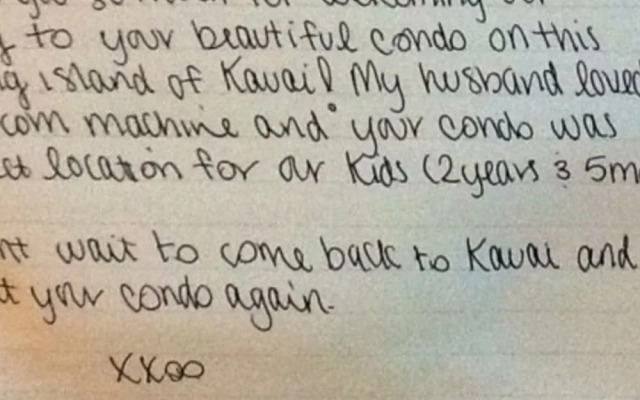 to your beautiful condo on this
island of Kauai! My husband loved
machine and your condo was
location for our kids (2years & 5m
wait to come back to Kauai and
your condo again.
xxoo